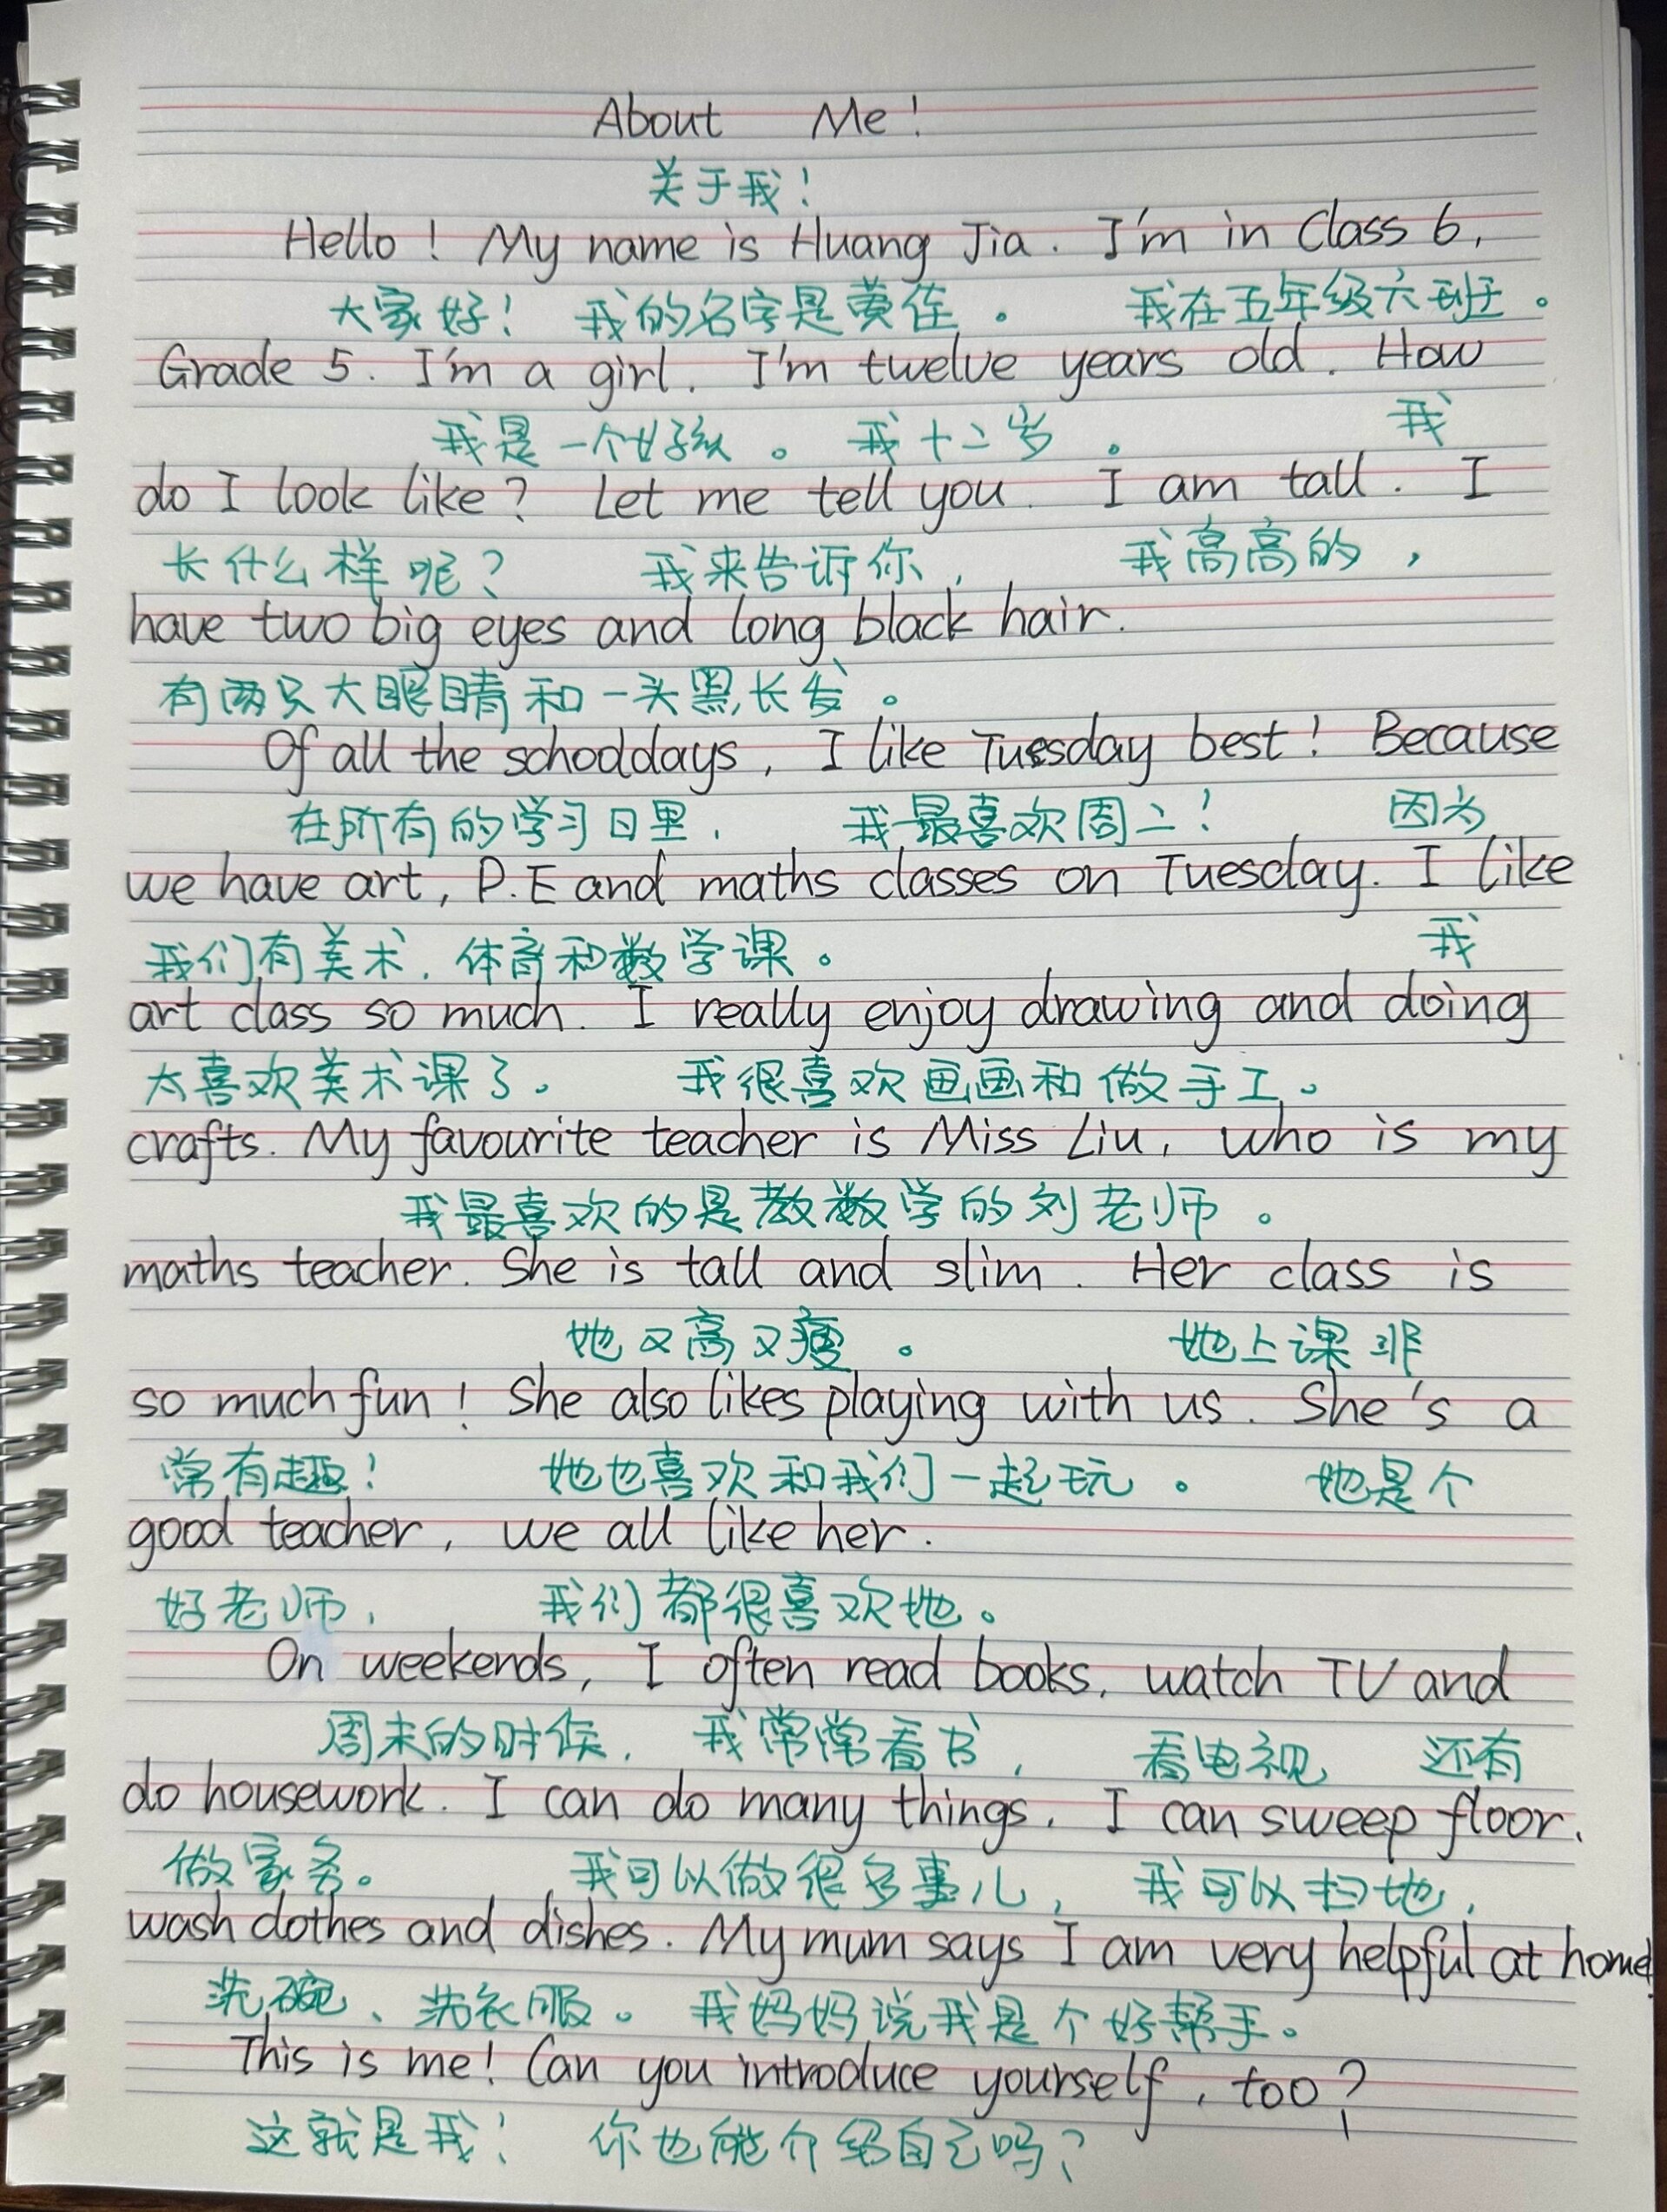 About Me!
关于我!
Hello! My name is Huang Jia. I'm in Class 6,
大家好! 我的名字是黄佳。 我在五年级六班。
Grade 5. I'm a girl. I'm twelve years old. How
我是一个女孩。 我十二岁。 我
do I look like? Let me tell you. I am tall. I
长什么样呢? 我来告诉你, 我高高的,
have two big eyes and long black hair.
有两只大眼睛和一头黑长发。
Of all the schooldays, I like Tuesday best! Because
在所有的学习日里, 我最喜欢周二! 因为
we have art, P.E and maths classes on Tuesday. I like
我们有美术, 体育和数学课。 我
art class so much. I really enjoy drawing and doing
太喜欢美术课了。 我很喜欢画画和做手工。
crafts. My favourite teacher is Miss Liu, who is my
我最喜欢的是教数学的刘老师。
maths teacher. She is tall and slim. Her class is
她又高又瘦。 她上课非
so much fun! She also likes playing with us. She's a
常有趣! 她也喜欢和我们一起玩。 她是个
good teacher, we all like her.
好老师, 我们都很喜欢她。
On weekends, I often read books, watch TV and
周末的时候, 我常常看书, 看电视 还有
do housework. I can do many things. I can sweep floor,
做家务。 我可以做很多事儿, 我可以扫地,
wash clothes and dishes. My mum says I am very helpful at home!
洗碗、洗衣服。 我妈妈说我是个好帮手。
This is me! Can you introduce yourself, too?
这就是我! 你也能介绍自己吗?